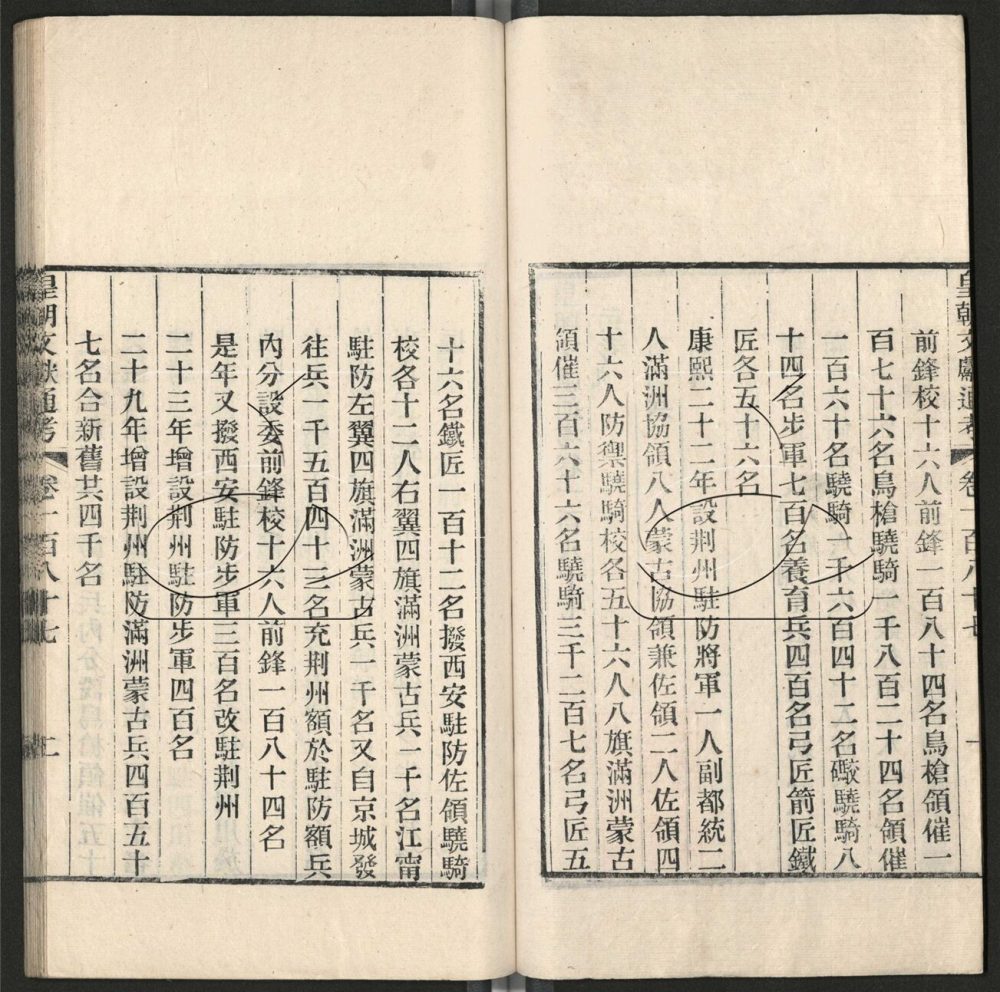 皇朝文獻通考 卷一百八十七
前鋒校十六人前鋒一百八十四名鳥槍領催一
百七十六名鳥槍驍騎一千八百二十四名領催
一百六十名驍騎一千六百四十二名礮驍騎八
十四名步軍七百名養育兵四百名弓匠箭匠鐵
匠各五十六名
康熙二十二年設荆州駐防將軍一人副都統二
人滿洲協領八人蒙古協領兼佐領二人佐領四
十六人防禦驍騎校各五十六人八旗滿洲蒙古
領催三百六十六名驍騎三千二百七名弓匠五
十六名鐵匠一百十二名撥西安駐防佐領驍騎
校各十二人右翼四旗滿洲蒙古兵一千名江甯
駐防左翼四旗滿洲蒙古兵一千名又自京城發
往兵一千五百四十三名充荆州額於駐防額兵
內分設委前鋒校十六人前鋒一百八十四名
是年又撥西安駐防步軍三百名改駐荆州
二十三年增設荆州駐防步軍四百名
二十九年增設荆州駐防滿洲蒙古兵四百五十
七名合新舊共四千名
皇朝文獻通考 卷一百八十七 二